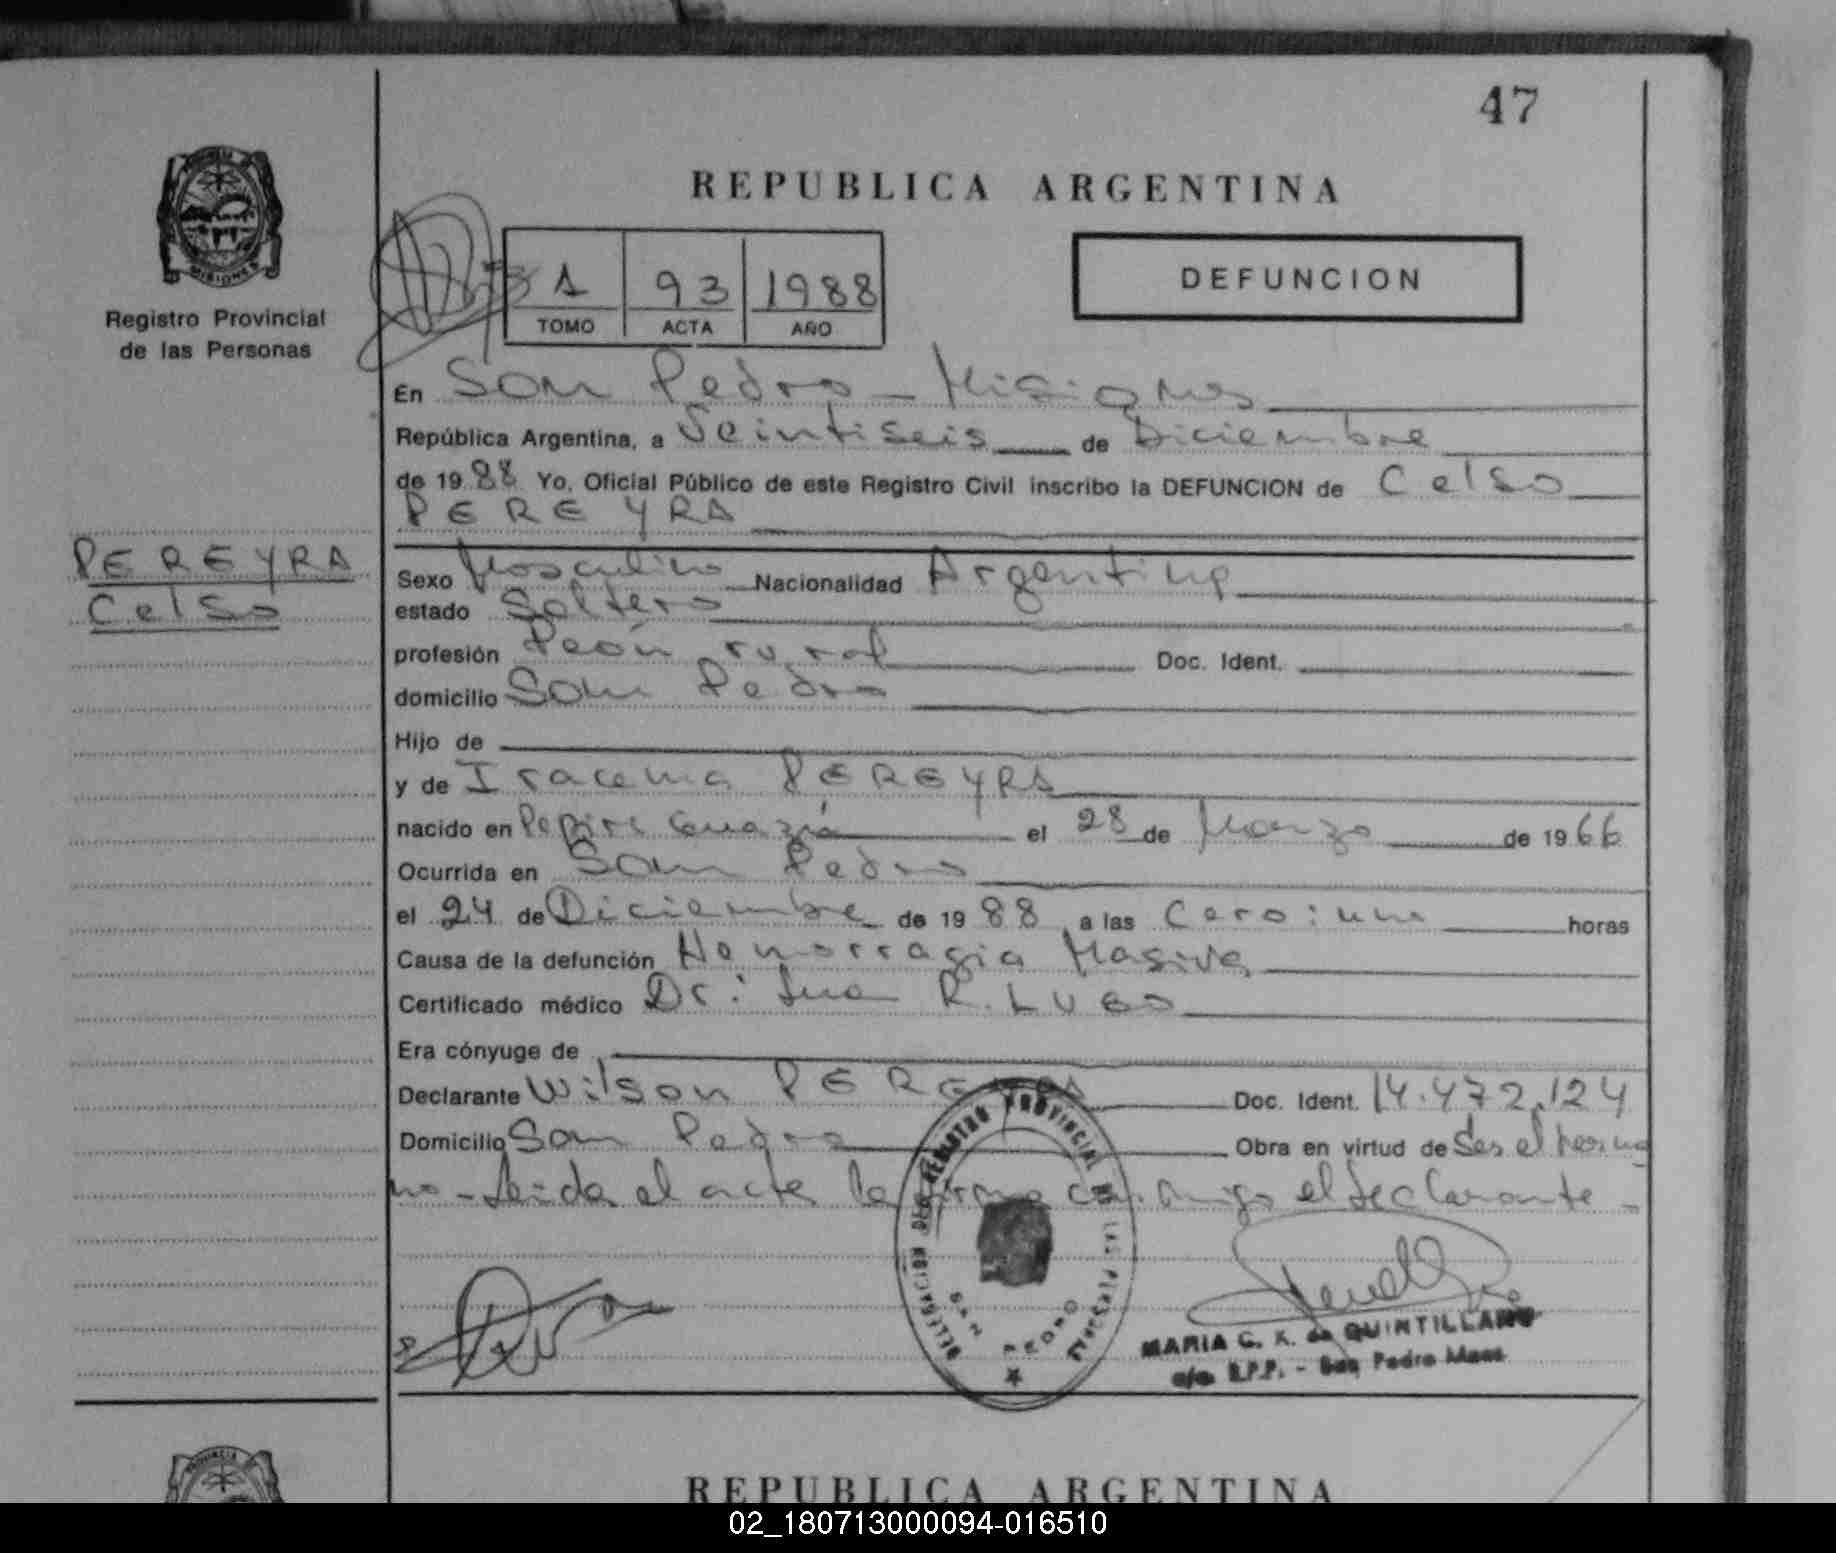 47
REPUBLICA ARGENTINA
PROVINCIA DE
MISIONES
Registro Provincial
de las Personas
1 93 1988
TOMO ACTA AÑO
DEFUNCION
En San Pedro - Misiones
República Argentina, a Veintiseis de Diciembre
de 1988 Yo, Oficial Público de este Registro Civil inscribo la DEFUNCION de Celso
PEREYRA
PEREYRA
Celso
Sexo Masculino Nacionalidad Argentina
estado Soltero
profesión Peón rural Doc. Ident.
domicilio San Pedro
Hijo de
y de Iracema PEREYRA
nacido en Pepiri Guazú el 28 de Marzo de 1966
Ocurrida en San Pedro
el 24 de Diciembre de 1988 a las Cero: una horas
Causa de la defunción Hemorragia Masiva
Certificado médico Dr: R. LUGO
Era cónyuge de
Declarante Wilson PEREYRA Doc. Ident. 14.472.124
Domicilio San Pedro Obra en virtud de Ser el herma
no - Leida el acta la firma conmigo el declarante -
DELEGACION DEL REGISTRO PROVINCIAL DE LAS PERSONAS
SAN PEDRO
MARIA C. K. de QUINTILLANO
a/c R.P.P. - San Pedro Mnes
REPUBLICA ARGENTINA
02_180713000094-016510